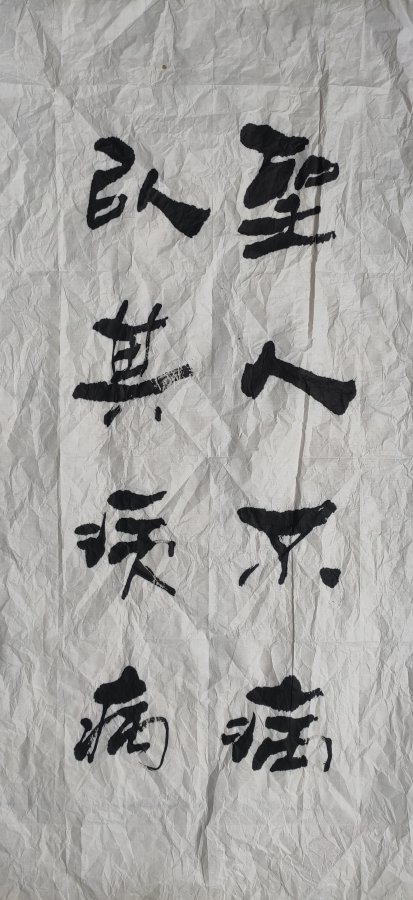 聖人不病
以其病病